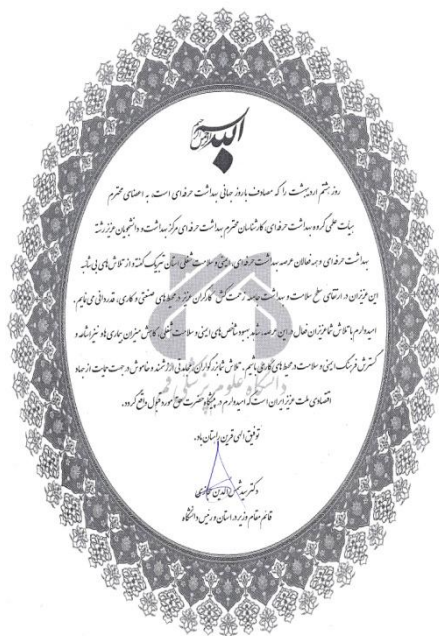 بسم الله الرحمن الرحیم
روز هشتم اردیبهشت را که مصادف با روز جهانی بهداشت حرفه ای است، به اعضای محترم
هیات علمی گروه بهداشت حرفه ای، کارشناسان محترم بهداشت حرفه ای مرکز بهداشت و دانشجویان عزیز رشته
بهداشت حرفه ای و همه فعالان عرصه بهداشت حرفه ای، ایمنی و سلامت شغلی استان تبریک گفته و از تلاش های بی شائبه
این عزیزان در ارتقای سطح سلامت و بهداشت جامعه زحمت کش کارگران عزیز در محیط های صنعتی و کاری، قدردانی می نمایم.
امیدوارم با تلاش شما عزیزان فعال در این عرصه، شاهد بهبود شاخص های ایمنی و سلامت شغلی، کاهش میزان بیماری ها و
گسترش فرهنگ ایمنی و سلامت در محیط های کارمان باشیم. تلاش شما بزرگواران، ارزشمند و خاموش در جهت حمایت از جهاد
اقتصادی ملت عزیز ایران است که امیدوارم در پیشگاه حضرت حق مورد قبول واقع گردد.
توفیق الهی قرین راهتان باد.
دکتر سید شمس الدین
قائم مقام وزیر در استان و رئیس دانشگاه
دانشگاه علوم پزشکی